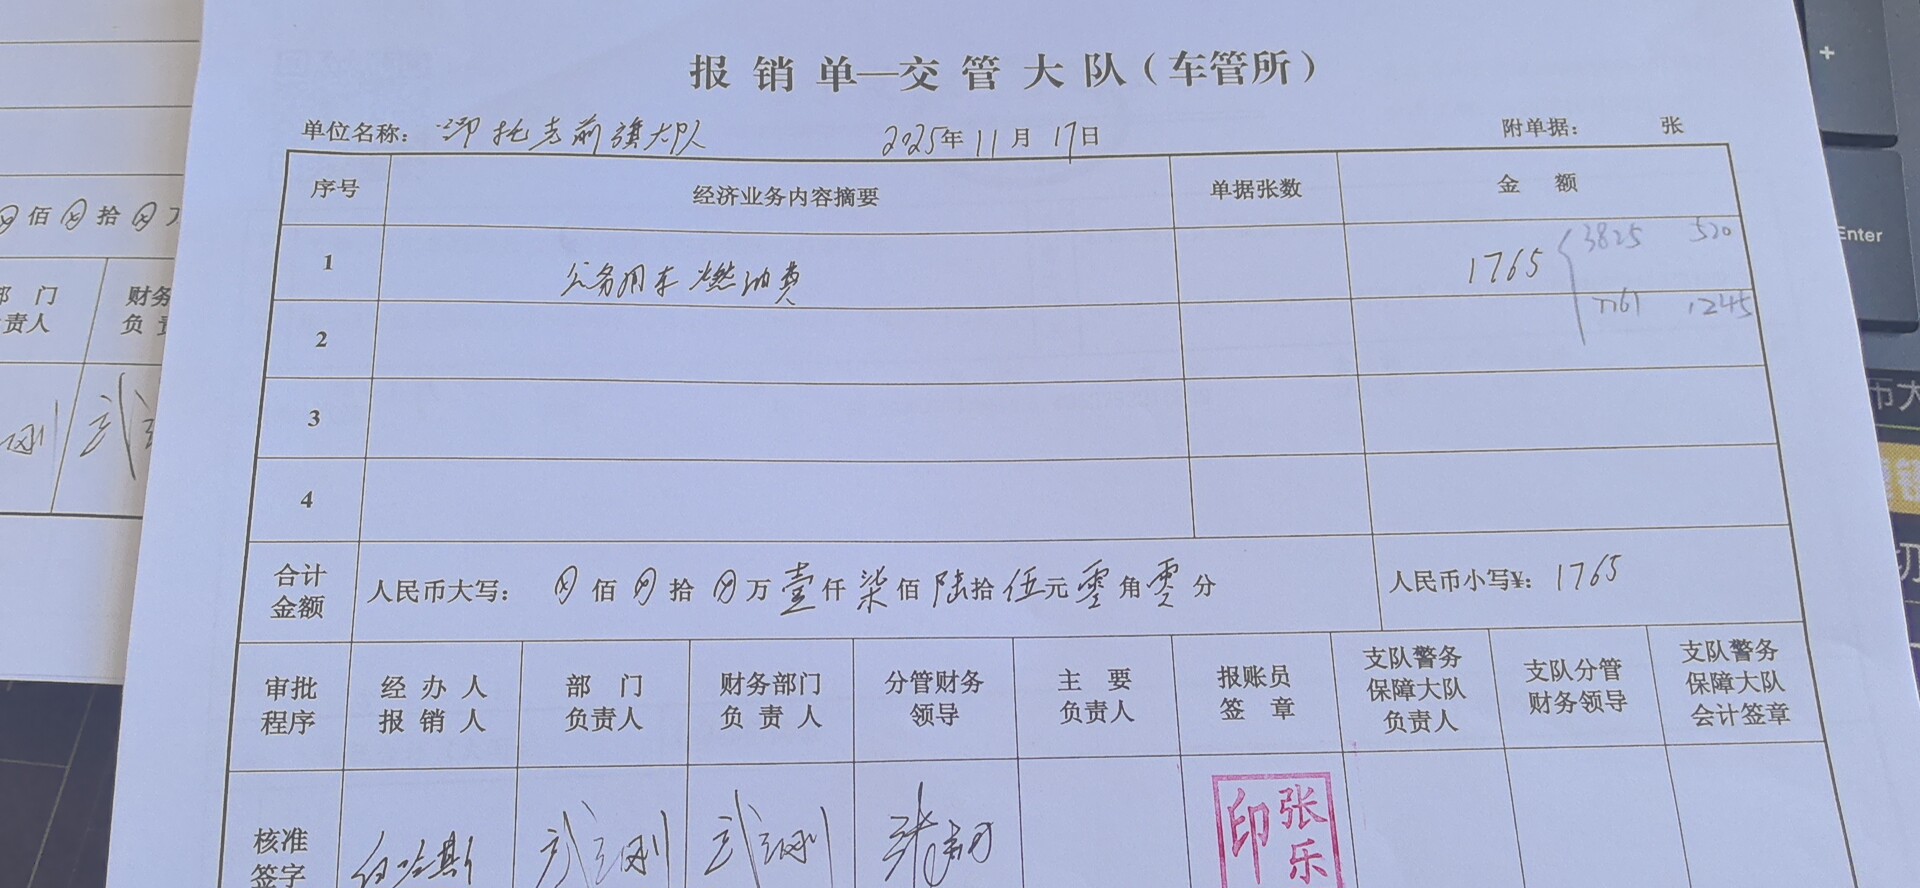 报销单—交管大队（车管所）
单位名称： 鄂托克前旗大队 2025年 11月 17日 附单据： 张
序号 经济业务内容摘要 单据张数 金额
1 公务用车燃油费 1765 3825 520
7761 1245
2
3
4
合计金额 人民币大写： 佰 拾 万 壹仟 柒佰 陆拾 伍元 零角 零分 人民币小写¥： 1765
审批程序 经办人报销人 部门负责人 财务部门负责人 分管财务领导 主要负责人 报账员签章 支队警务保障大队负责人 支队分管财务领导 支队警务保障大队会计签章
核准签字 印 张乐
佰 拾 万
部门负责人 财务
Enter
+